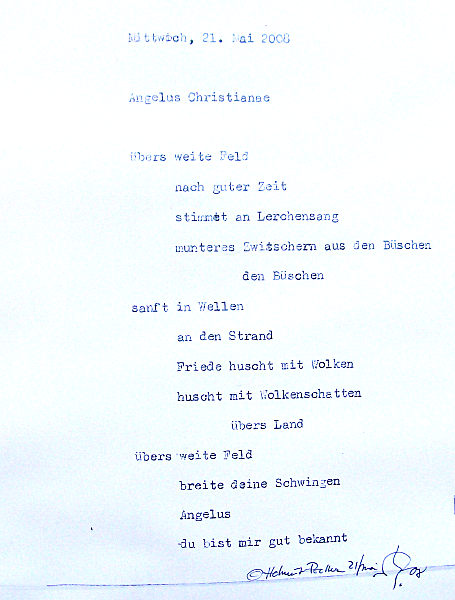 Mittwoch, 21. Mai 2008
Angelus Christianae
Übers weite Feld
nach guter Zeit
stimmet an Lerchensang
munteres Zwitschern aus den Büschen
den Büschen
sanft in Wellen
an den Strand
Friede huscht mit Wolken
huscht mit Wolkenschatten
übers Land
übers weite Feld
breite deine Schwingen
Angelus
du bist mir gut bekannt
© Helmut 21/mai 08